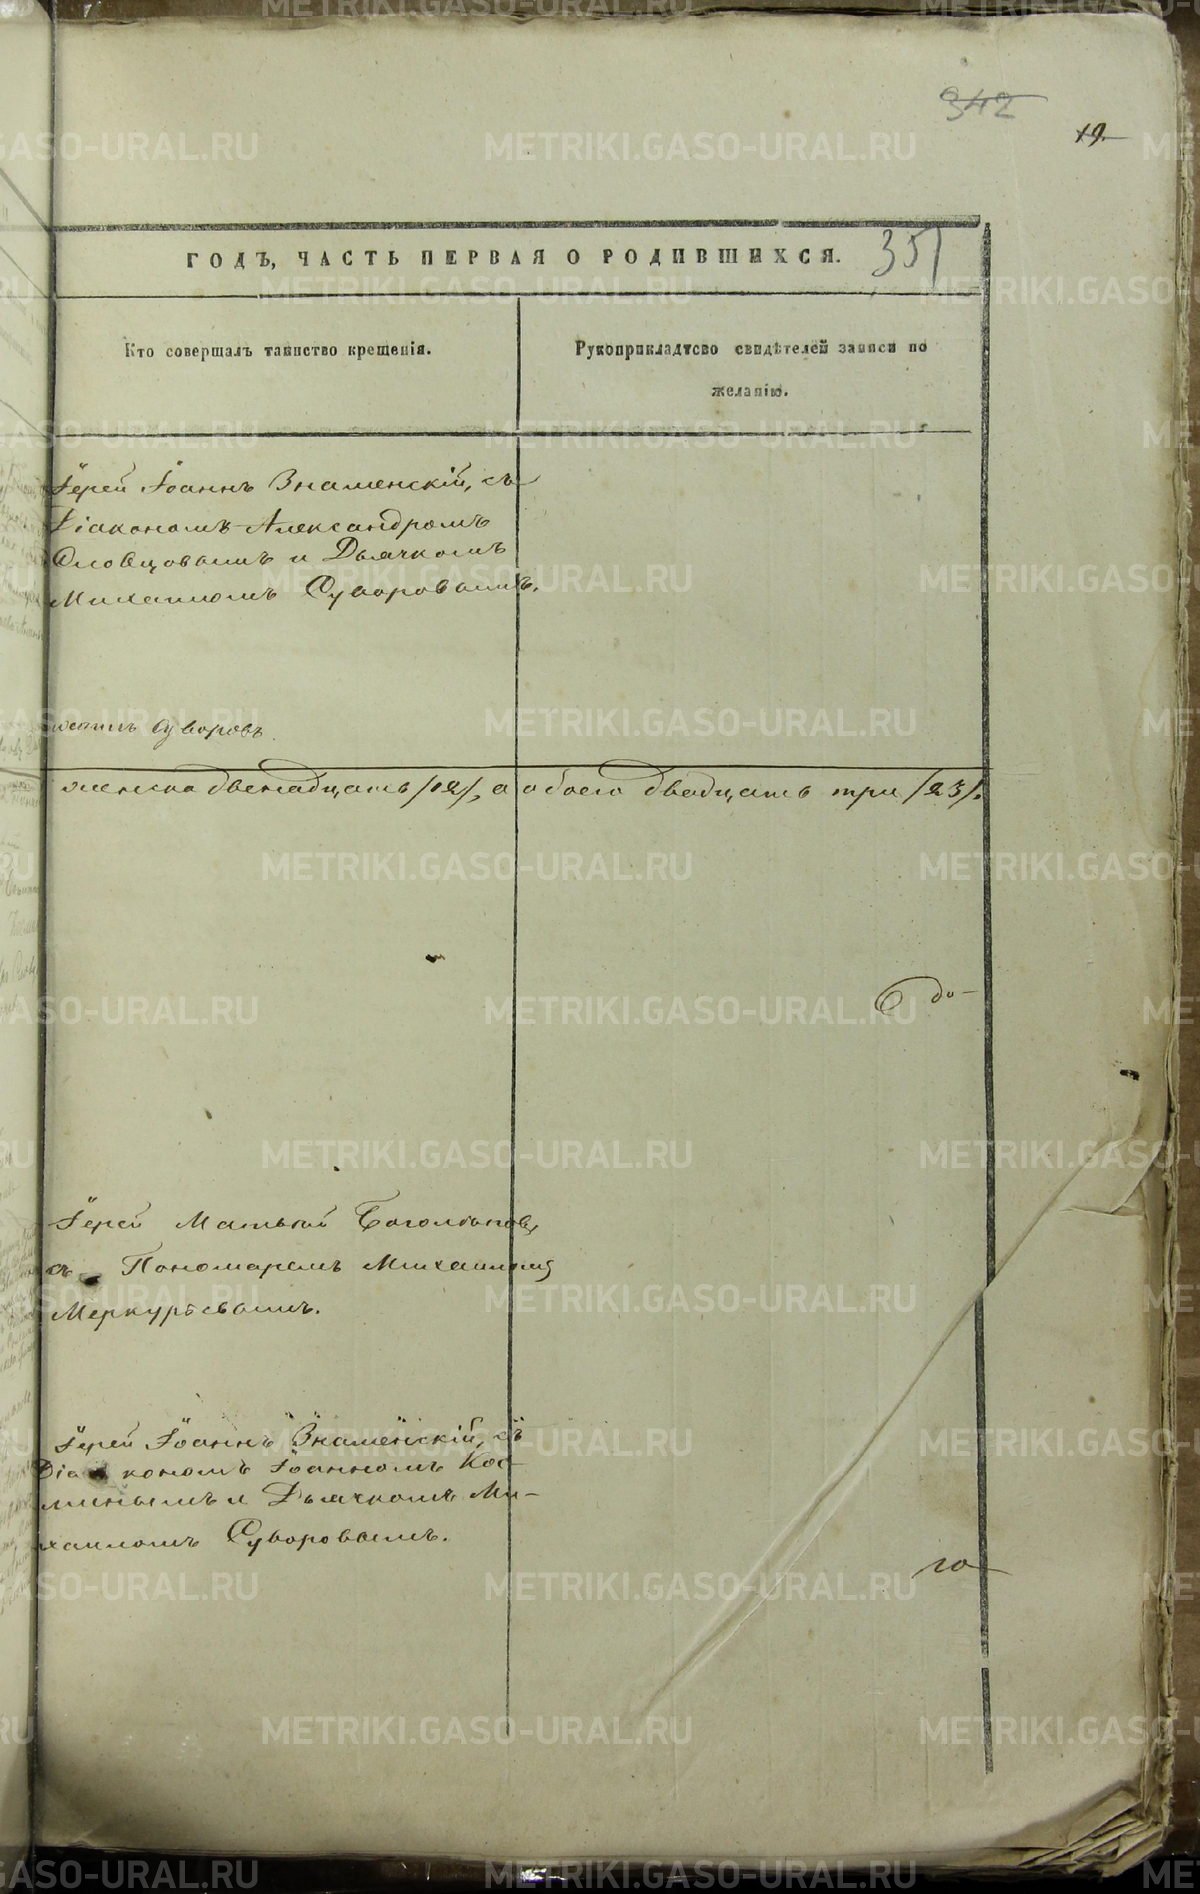 342
19.
ГОДЪ, ЧАСТЬ ПЕРВАЯ О РОДИВШИХСЯ.
351
Кто совершалъ таинство крещенія.
Рукоприкладтсво свидѣтелей записи по
желанію.
Іерей Іоаннъ Знаменскій, съ
Діакономъ Александромъ
Словцовымъ и Дьячкомъ
Михаиломъ Суворовымъ.
Суворовъ
женска двенадцать /12/, а обоего двадцать три /23/.
до-
Іерей Матвѣй Боголюбовъ,
съ Пономаремъ Михаиломъ
Меркурьевымъ.
Іерей Іоаннъ Знаменскій, съ
Діакономъ Іоанномъ Кос-
минымъ и Дьячкомъ Ми-
хаиломъ Суворовымъ.
го
METRIKI.GASO-URAL.RU